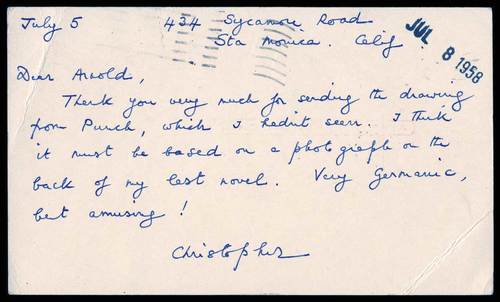 July 5 434 Sycamore Road
Sta Monica. Calif
JUL 8 1958
Dear Arnold,
Thank you very much for sending the drawing
from Punch, which I hadn't seen. I think
it must be based on a photograph on the
back of my last novel. Very Germanic,
but amusing!
Christopher